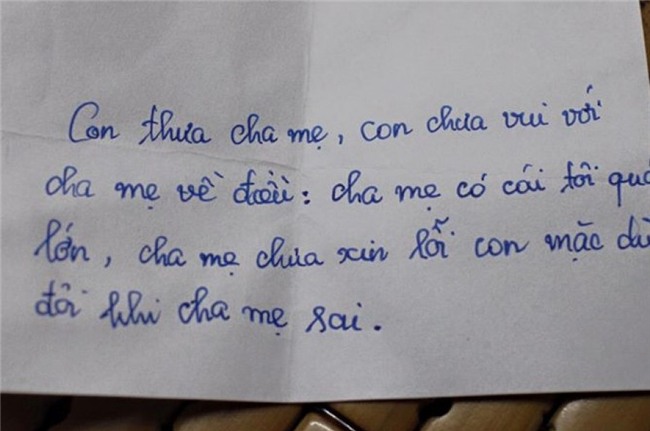 Con thưa cha mẹ, con chưa vui với
cha mẹ về điều: cha mẹ có cái tôi quá
lớn, cha mẹ chưa xin lỗi con mặc dù
đôi khi cha mẹ sai.